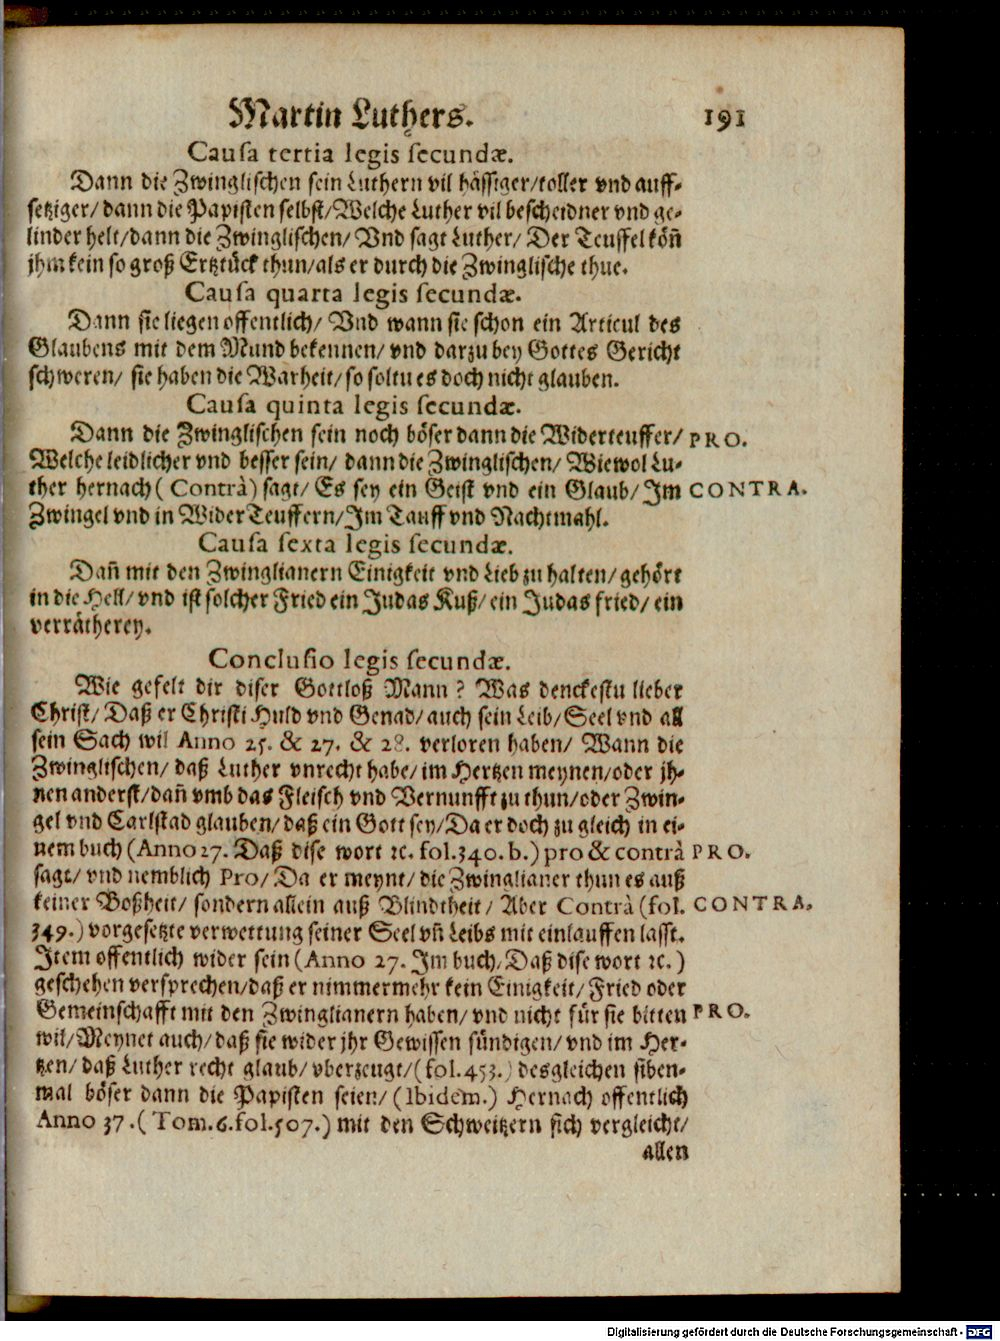 Martin Luthers. 191
Causa tertia legis secundæ.
Dann die Zwinglischen sein Luthern vil hässiger/toller vnd auff-
setziger/ dann die Papisten selbst/Welche Luther vil bescheidner vnd ge-
linder helt/dann die Zwinglischen/ Vnd sagt Luther/ Der Teuffel köñ
jhm kein so groß Ertztück thun/als er durch die Zwinglische thue.
Causa quarta legis secundæ.
Dann sie liegen offentlich/ Vnd wann sie schon ein Articul des
Glaubens mit dem Mund bekennen/ vnd darzu bey Gottes Gericht
schweren/ sie haben die Warheit/ so soltu es doch nicht glauben.
Causa quinta legis secundæ.
Dann die Zwinglischen sein noch böser dann die Widerteuffer/ PRO.
Welche leidlicher vnd besser sein/ dann die Zwinglischen/ Wiewol Lu-
ther hernach (Contrà) sagt/ Es sey ein Geist vnd ein Glaub/ Im CONTRA.
Zwingel vnd in WiderTeuffern/Im Tauff vnd Nachtmahl.
Causa sexta legis secundæ.
Dañ mit den Zwinglianern Einigkeit vnd Lieb zu halten/ gehört
in die Hell/ vnd ist solcher Fried ein Judas Kuß/ ein Judas fried/ ein
verrätherey.
Conclusio legis secundæ.
Wie gefelt dir diser Gottloß Mann? Was denckestu lieber
Christ/ Daß er Christi Huld vnd Genad/ auch sein Leib/ Seel vnd all
sein Sach wil Anno 25. & 27. & 28. verloren haben/ Wann die
Zwinglischen/ daß Luther vnrecht habe/ im Hertzen meynen/oder jh-
nen anderst/dañ vmb das Fleisch vnd Vernunfft zu thun/oder Zwin-
gel vnd Carlstad glauben/ daß ein Gott sey/Da er doch zu gleich in ei-
nem buch (Anno 27. Daß dise wort ꝛc. fol.340.b.) pro & contrà PRO.
sagt/ vnd nemblich Pro/ Da er meynt/ die Zwinglianer thun es auß
keiner Boßheit/ sondern allein auß Blindtheit/ Aber Contrà (fol. CONTRA.
349.) vorgesetzte verwettung seiner Seel vñ Leibs mit einlauffen lasst.
Item offentlich wider sein (Anno 27. Im buch/ Daß dise wort ꝛc.)
geschehen versprechen/daß er nimmermehr kein Einigkeit/ Fried oder
Gemeinschafft mit den Zwinglianern haben/ vnd nicht für sie bitten PRO.
wil/ Meynet auch/ daß sie wider jhr Gewissen sündigen/ vnd im Her-
tzen/ daß Luther recht glaub/ vberzeugt/ (fol.453.) desgleichen siben-
mal böser dann die Papisten seien/ (Ibidem.) Hernach offentlich
Anno 37. (Tom.6.fol.507.) mit den Schweitzern sich vergleicht/
allen
Digitalisierung gefördert durch die Deutsche Forschungsgemeinschaft - DFG